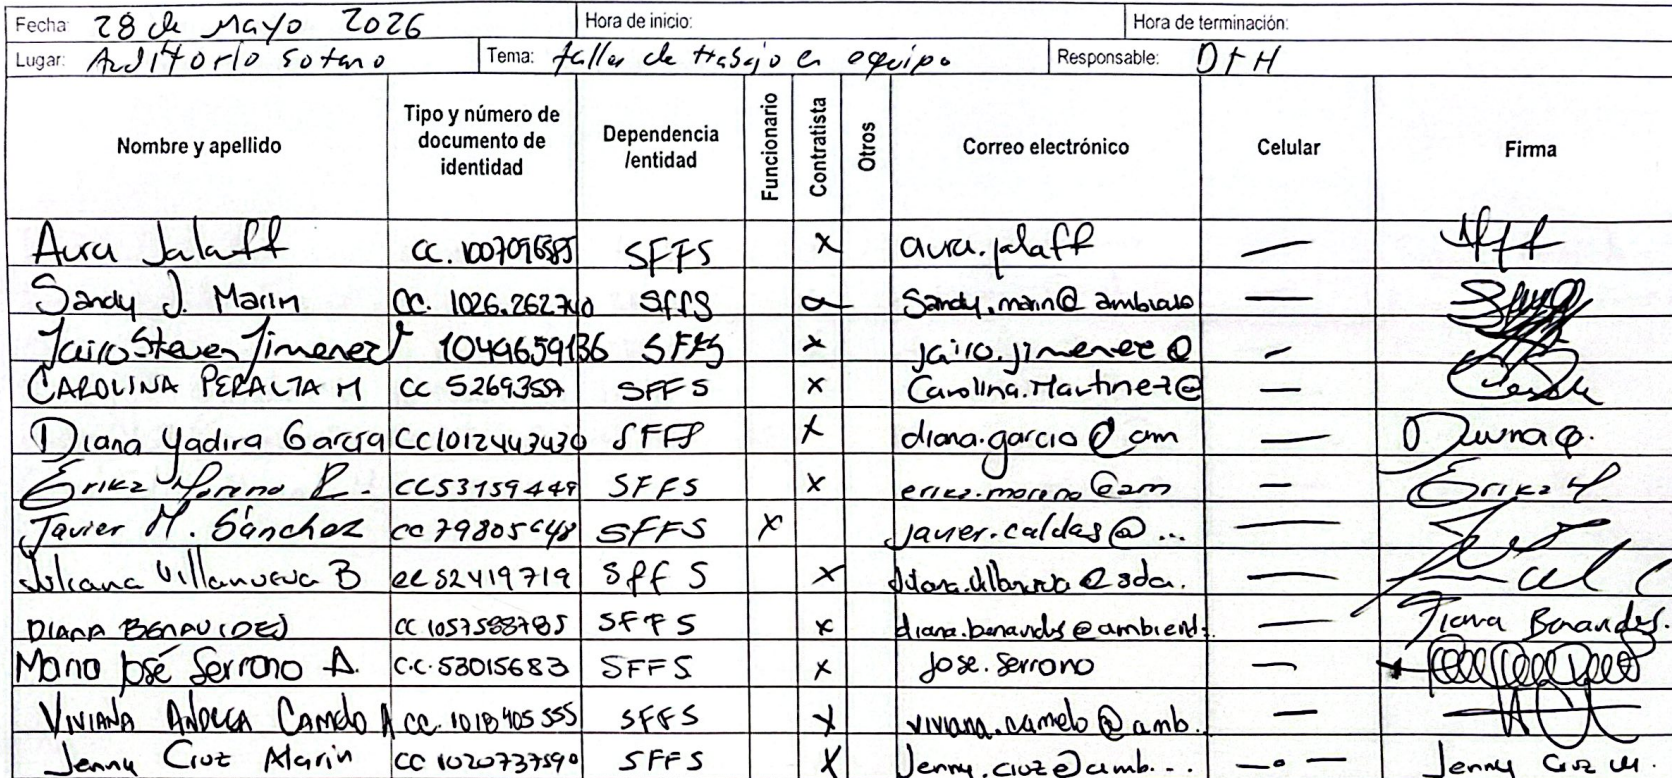 Fecha: 28 de Mayo 2026 Hora de inicio: Hora de terminación:
Lugar: Auditorio sotano Tema: taller de trabajo en equipo Responsable: DTH
Nombre y apellido Tipo y número de documento de identidad Dependencia /entidad Funcionario Contratista Otros Correo electrónico Celular Firma
Aura Jalaff CC. SFFS x aura.jalaff —
Sandy J. Marin CC. 1026.262740 SFFS Sandy.marin@ —
Jairo Steven Jimenez 1049659136 SFFS x jairo.jimenez@ —
CAROLINA PERALTA M CC SFFS x Carolina.Martinez@ —
Diana Yadira García CC1012443430 SFFS x diana.garcia@am — Diana G.
Erika Moreno R. CC53159449 SFFS x erika.moreno@am — Erika M.
Javier M. Sánchez CC SFFS x javier.caldas@... —
Juliana Villanueva B CC 52419719 SFFS x Juliana.Villanueva@sda. —
DIANA BENAVIDES CC 1057588785 SFFS x diana.benavides@ambiente. — Diana Benavides.
Maria José Serrano A. C.C. 53015683 SFFS x jose.serrano —
VIVIANA ANDREA CAMELO A CC. 1018405555 SFFS x viviana.camelo@amb. —
Jenny Cruz Marin CC 1020737590 SFFS x Jenny.cruz@amb... — Jenny Cruz M.